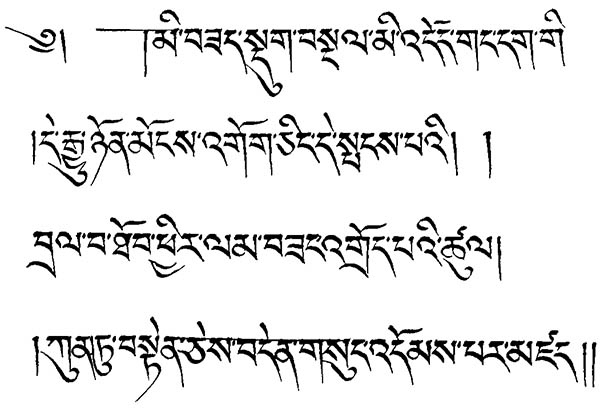 ༄། །མི་བཟད་སྡུག་བསྔལ་མི་འདོད་གང་དག་གི
།དེ་རྒྱུ་ཉོན་མོངས་འགོག་ཅིང་དེ་སྤངས་པའི། །
བྲལ་བ་ཐོབ་ཕྱིར་ལམ་བཟང་འགྲོད་པའི་ཚུལ།
།ཀུན་ཏུ་བསྟེན་ཅེས་བདེན་གསུང་འདོམས་པར་མཛད།།